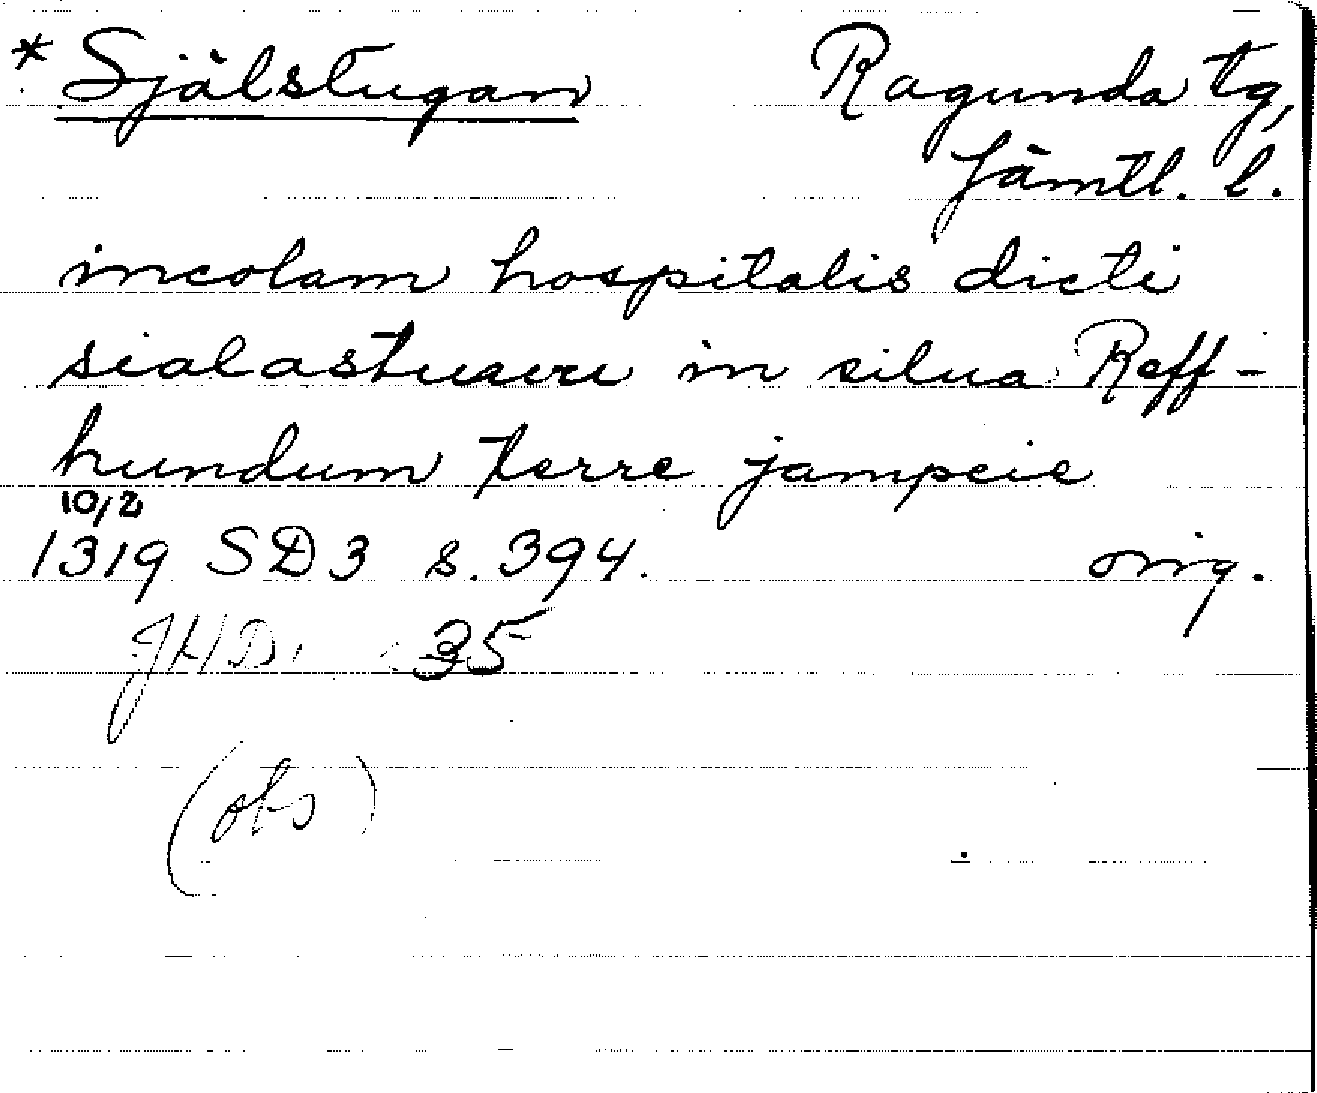 * Själstugan Ragunda tg,
Jämtl. l.
incolam hospitalis dicti
in silua Raff-
hundum terre jampcie
10/2
1319 SD3 s. 394. orig.
JHD. 35
(obs)